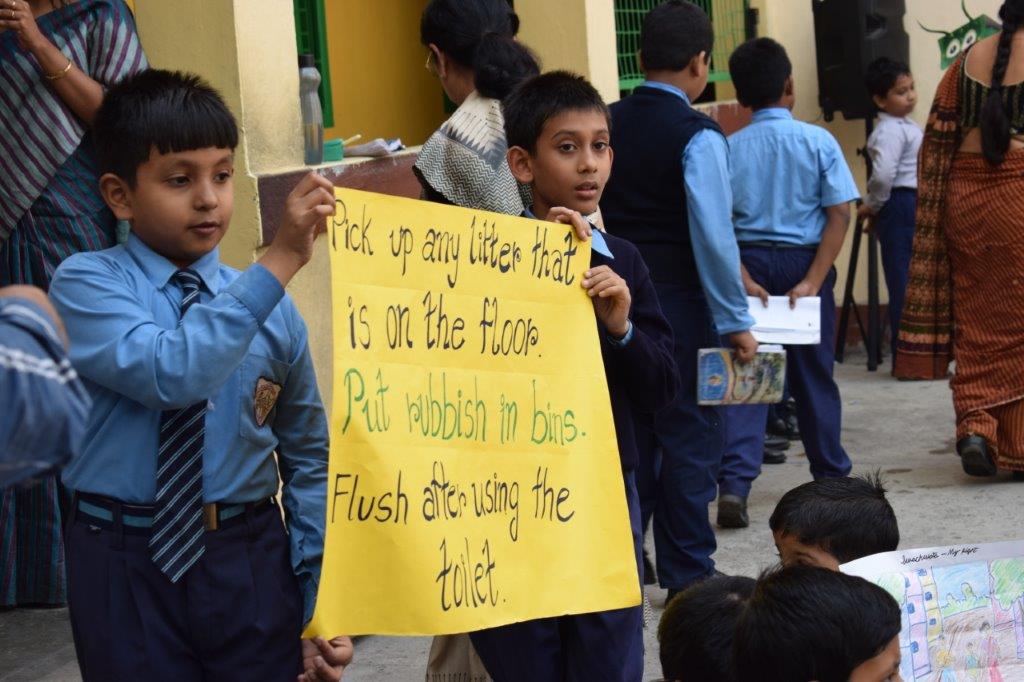 Pick up any litter that
is on the floor.
Put rubbish in bins.
Flush after using the
toilet.
Swachwata - My Right